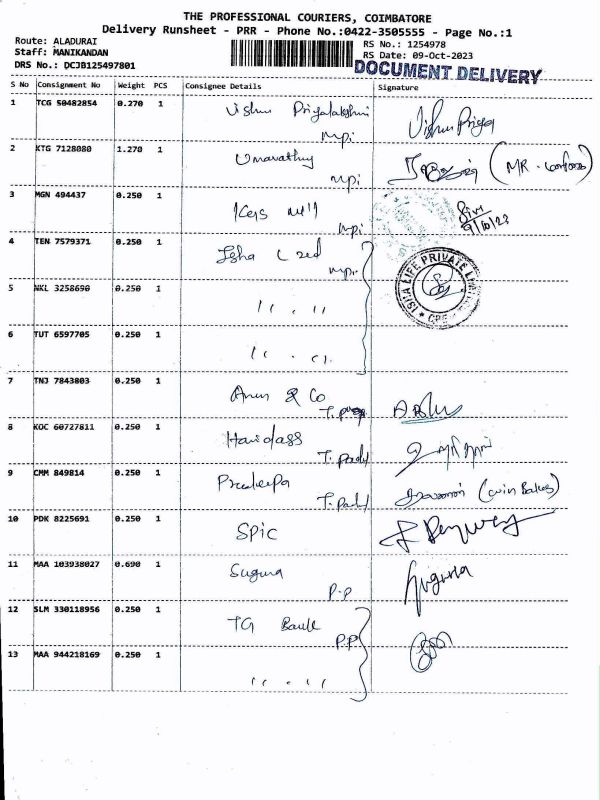 THE PROFESSIONAL COURIERS, COIMBATORE
Delivery Runsheet - PRR - Phone No.:0422-3505555 - Page No.:1
Route: ALADURAI RS No.: 1254978
Staff: MANIKANDAN RS Date: 09-Oct-2023
DRS No.: DCJB125497801 DOCUMENT DELIVERY
S No Consignment No Weight PCS Consignee Details Signature
1 TCG 50482854 0.270 1 Vishnu Priyalakshmi Vishnu Priya
mpi
2 KTG 7128080 1.270 1 Umavathy
mpi
3 MGN 494437 0.250 1 mill
mpi 9/10/23
4 TEN 7579371 0.250 1 Isha
mpi ISHA LIFE PRIVATE
5 NKL 3258690 0.250 1 ,, . ,,
6 TUT 6597705 0.250 1 ,, . ,,
7 TNJ 7843803 0.250 1 Arun & Co
8 KOC 60727811 0.250 1 Haridass
T. pady
9 CMM 849814 0.250 1 Pradeepa
T. pady
10 PDK 8225691 0.250 1 SPIC
11 MAA 103938027 0.690 1 Suguna Suguna
P.P
12 SLM 330118956 0.250 1 TG
P.P
13 MAA 944218169 0.250 1 ,, . ,,